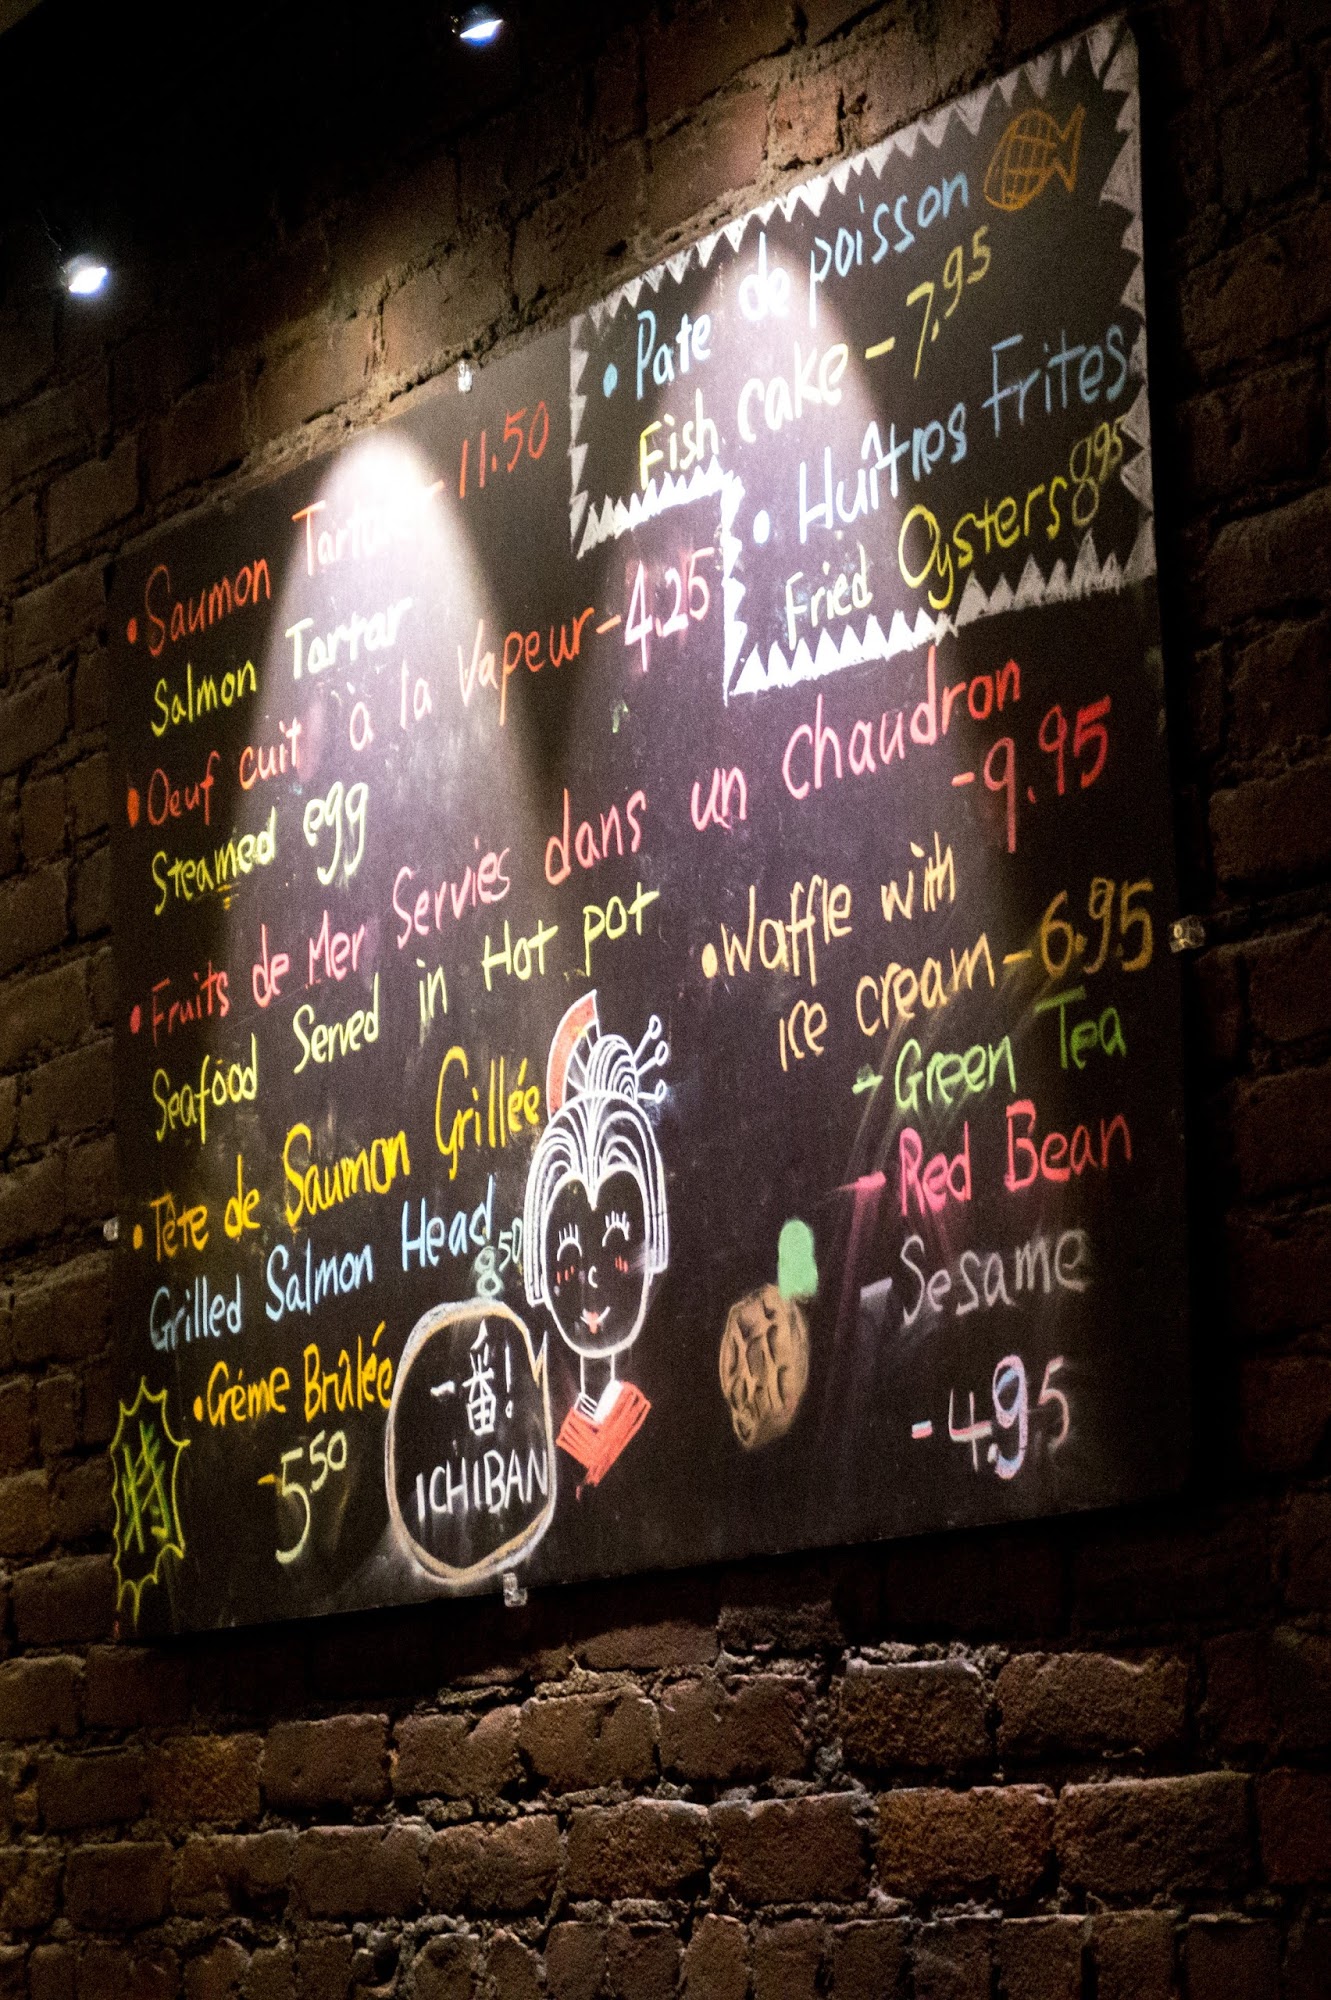 • Saumon Tartare - 11.50
Salmon Tartar
• Oeuf cuit à la Vapeur - 4.25
Steamed egg
• Fruits de Mer Servies dans un chaudron
- 9.95
Seafood Served in Hot pot
• Tête de Saumon Grillée
Grilled Salmon Head
8.50
• Crème Brûlée
- 5.50
特
一番!
ICHIBAN
• Pate de poisson
Fish cake - 7.95
• Huîtres Frites
Fried Oysters 8.95
• Waffle with
ice cream - 6.95
- Green Tea
- Red Bean
- Sesame
- 4.95